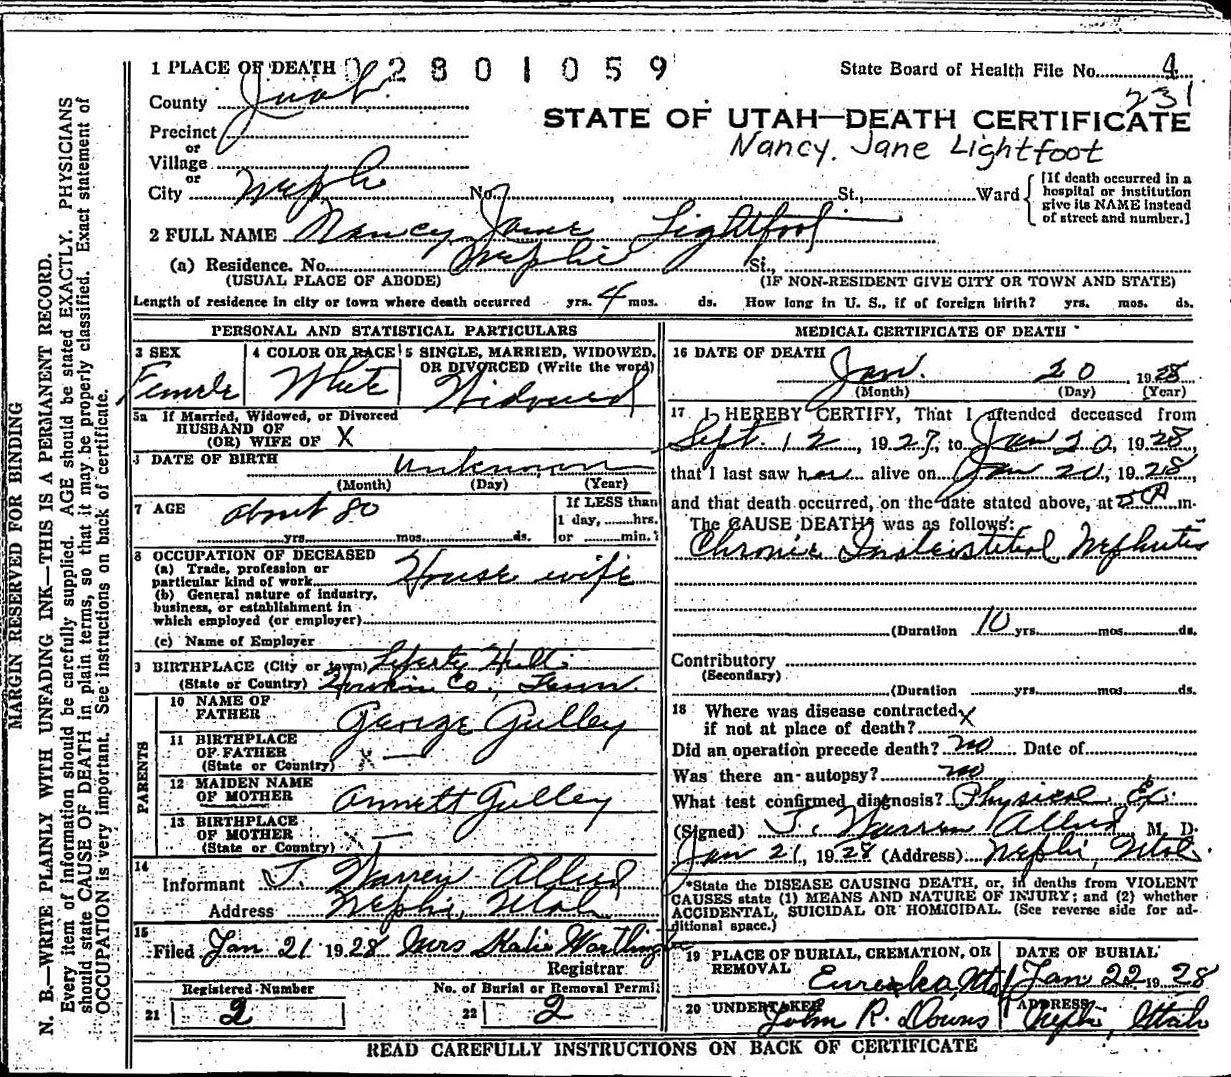 1 PLACE OF DEATH 02801059
State Board of Health File No. 4
231
County Juab
STATE OF UTAH—DEATH CERTIFICATE
Precinct
or
Nancy Jane Lightfoot
Village
or
City Nephi No. St., Ward
[If death occurred in a
hospital or institution
give its NAME instead
of street and number.]
2 FULL NAME Nancy Jane Lightfoot
(a) Residence. No. Nephi St.,
(USUAL PLACE OF ABODE) (IF NON-RESIDENT GIVE CITY OR TOWN AND STATE)
Length of residence in city or town where death occurred yrs. 4 mos. ds. How long in U. S., if of foreign birth? yrs. mos. ds.
PERSONAL AND STATISTICAL PARTICULARS
3 SEX
Female
4 COLOR OR RACE
White
5 SINGLE, MARRIED, WIDOWED,
OR DIVORCED (Write the word)
Widowed
5a If Married, Widowed, or Divorced
HUSBAND OF
(OR) WIFE OF X
DATE OF BIRTH unknown
(Month) (Day) (Year)
7 AGE about 80
yrs. mos. ds.
If LESS than
1 day, hrs.
or min.?
8 OCCUPATION OF DECEASED
(a) Trade, profession or
particular kind of work House wife
(b) General nature of industry,
business, or establishment in
which employed (or employer)
(c) Name of Employer
BIRTHPLACE (City or town) Liberty Hill
(State or Country) Co., Tenn.
PARENTS
10 NAME OF
FATHER George Gulley
11 BIRTHPLACE
OF FATHER
(State or Country) X —
12 MAIDEN NAME
OF MOTHER Annett Gulley
13 BIRTHPLACE
OF MOTHER
(State or Country) X —
14
Informant J. Warren Allred
Address Nephi, Utah
15
Filed Jan 21 1928 Mrs Katie Worthington
Registrar
Registered Number
21 2
No. of Burial or Removal Permit
22 2
MEDICAL CERTIFICATE OF DEATH
16 DATE OF DEATH
Jan. 20 1928
(Month) (Day) (Year)
17 I HEREBY CERTIFY, That I attended deceased from
Sept. 12, 1927, to Jan 20, 1928,
that I last saw her alive on Jan 20, 1928,
and that death occurred, on the date stated above, at 5 A m.
The CAUSE DEATH was as follows:
Chronic Insteistitial Nephritis
(Duration 10 yrs. mos. ds.
Contributory
(Secondary)
(Duration yrs. mos. ds.
18 Where was disease contracted X
if not at place of death?
Did an operation precede death? no Date of
Was there an autopsy? no
What test confirmed diagnosis? Physical Ex.
(Signed) J. Warren Allred, M. D.
Jan 21, 1928 (Address) Nephi, Utah.
*State the DISEASE CAUSING DEATH, or, in deaths from VIOLENT
CAUSES state (1) MEANS AND NATURE OF INJURY; and (2) whether
ACCIDENTAL, SUICIDAL OR HOMICIDAL. (See reverse side for ad-
ditional space.)
19 PLACE OF BURIAL, CREMATION, OR
REMOVAL Eureka, Ut
DATE OF BURIAL
Jan 22 1928
20 UNDERTAKER
John R. Downs
ADDRESS
Nephi, Utah
READ CAREFULLY INSTRUCTIONS ON BACK OF CERTIFICATE
MARGIN RESERVED FOR BINDING
N. B.—WRITE PLAINLY WITH UNFADING INK—THIS IS A PERMANENT RECORD.
Every item of information should be carefully supplied. AGE should be stated EXACTLY. PHYSICIANS
should state CAUSE OF DEATH in plain terms, so that it may be properly classified. Exact statement of
OCCUPATION is very important. See instructions on back of certificate.